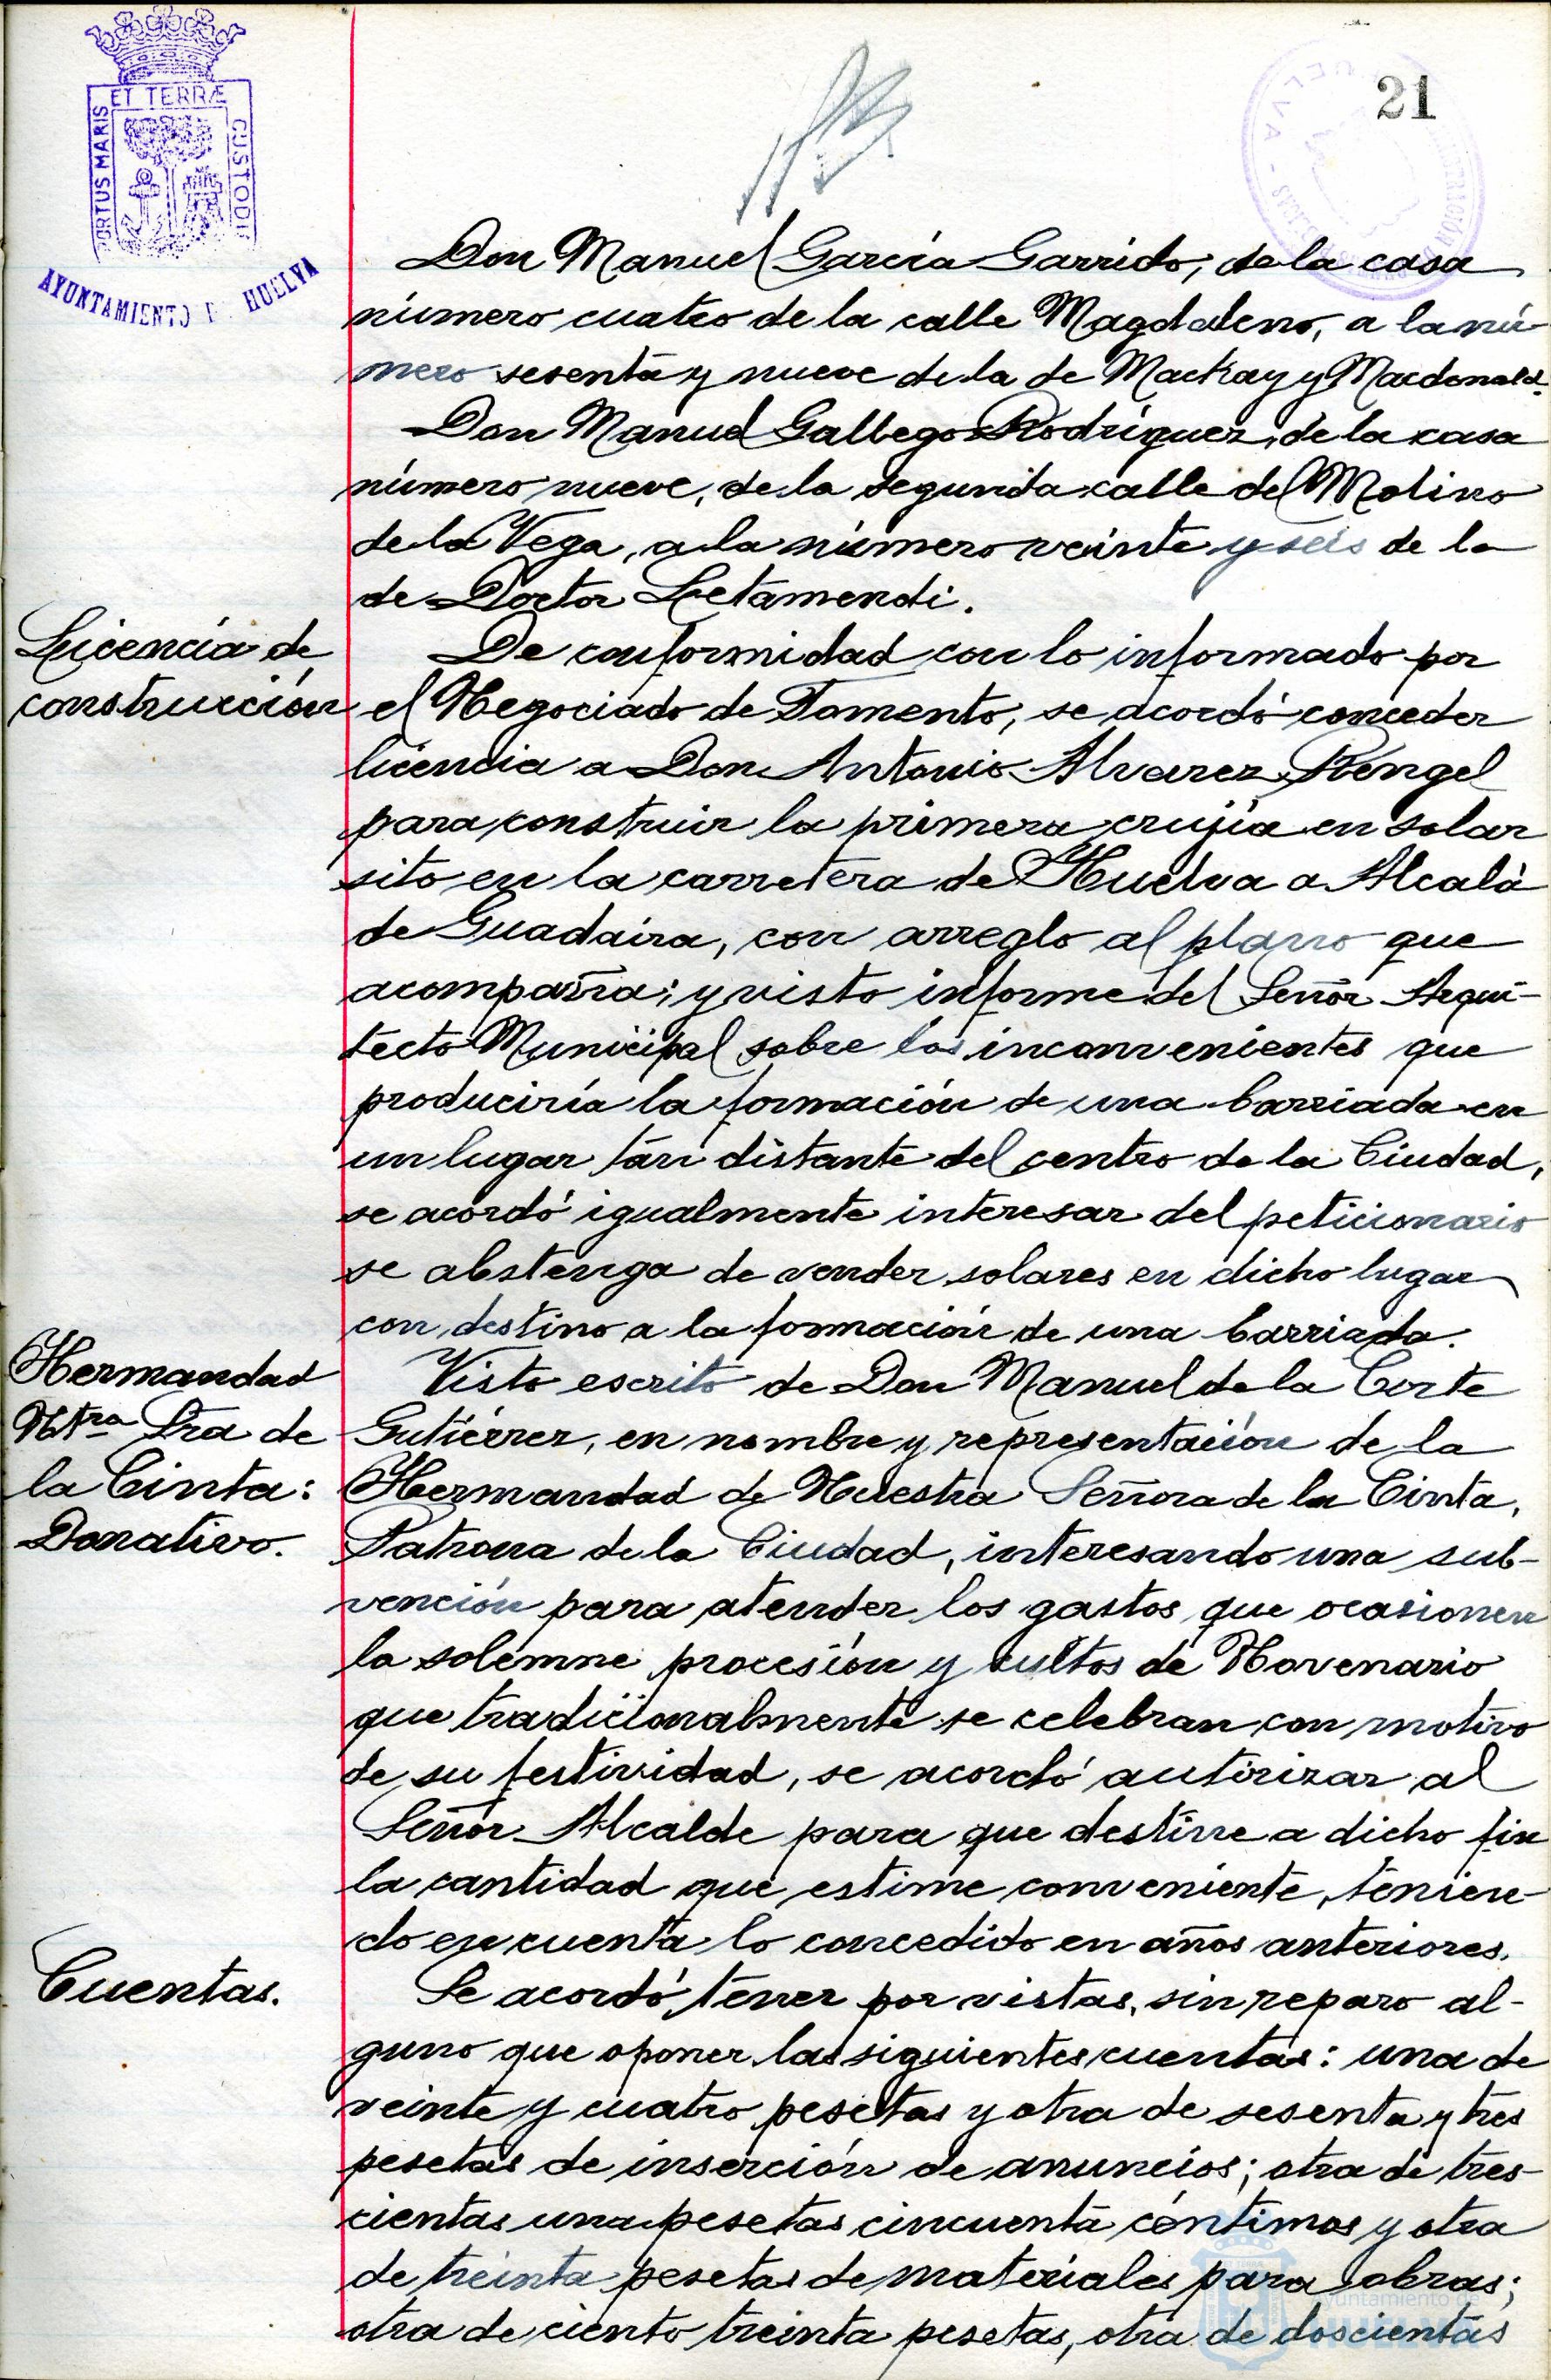 21
PORTUS MARIS ET TERRÆ CUSTODI
AYUNTAMIENTO D HUELVA
Don Manuel García Garrido, de la casa
número cuatro de la calle Magdaleno, a la nú-
mero sesenta y nueve de la de Mackay y Macdonald.
Don Manuel Gallego Rodríguez, de la casa
número nueve, de la segunda calle del Molino
de la Vega, a la número veinte y seis de la
de Doctor Letamendi.
Licencia de
construcción
De conformidad con lo informado por
el Negociado de Fomento, se acordó conceder
licencia a Don Antonio Alvarez Rengel
para construir la primera crujía en solar
sito en la carretera de Huelva a Alcalá
de Guadaira, con arreglo al plano que
acompaña; y visto informe del Señor Arqui-
tecto Municipal sobre los inconvenientes que
produciría la formación de una barriada en
un lugar tan distante del centro de la Ciudad,
se acordó igualmente interesar del peticionario
se abstenga de vender solares en dicho lugar
con destino a la formación de una barriada.
Hermandad
Ntra Sra de
la Cinta:
Donativo.
Visto escrito de Don Manuel de la Corte
Gutiérrez, en nombre y representación de la
Hermandad de Nuestra Señora de la Cinta,
Patrona de la Ciudad, interesando una sub-
vención para atender los gastos que ocasionen
la solemne procesión y cultos de Novenario
que tradicionalmente se celebran con motivo
de su festividad, se acordó autorizar al
Señor Alcalde para que destine a dicho fin
la cantidad que estime conveniente, tenien-
do en cuenta lo concedido en años anteriores.
Cuentas.
Se acordó tener por vistas, sin reparo al-
guno que oponer las siguientes cuentas: una de
veinte y cuatro pesetas y otra de sesenta y tres
pesetas de inserción de anuncios; otra de tres-
cientas una pesetas cincuenta céntimos y otra
de treinta pesetas de materiales para obras;
otra de ciento treinta pesetas, otra de doscientas
Ayuntamiento de
HUELVA